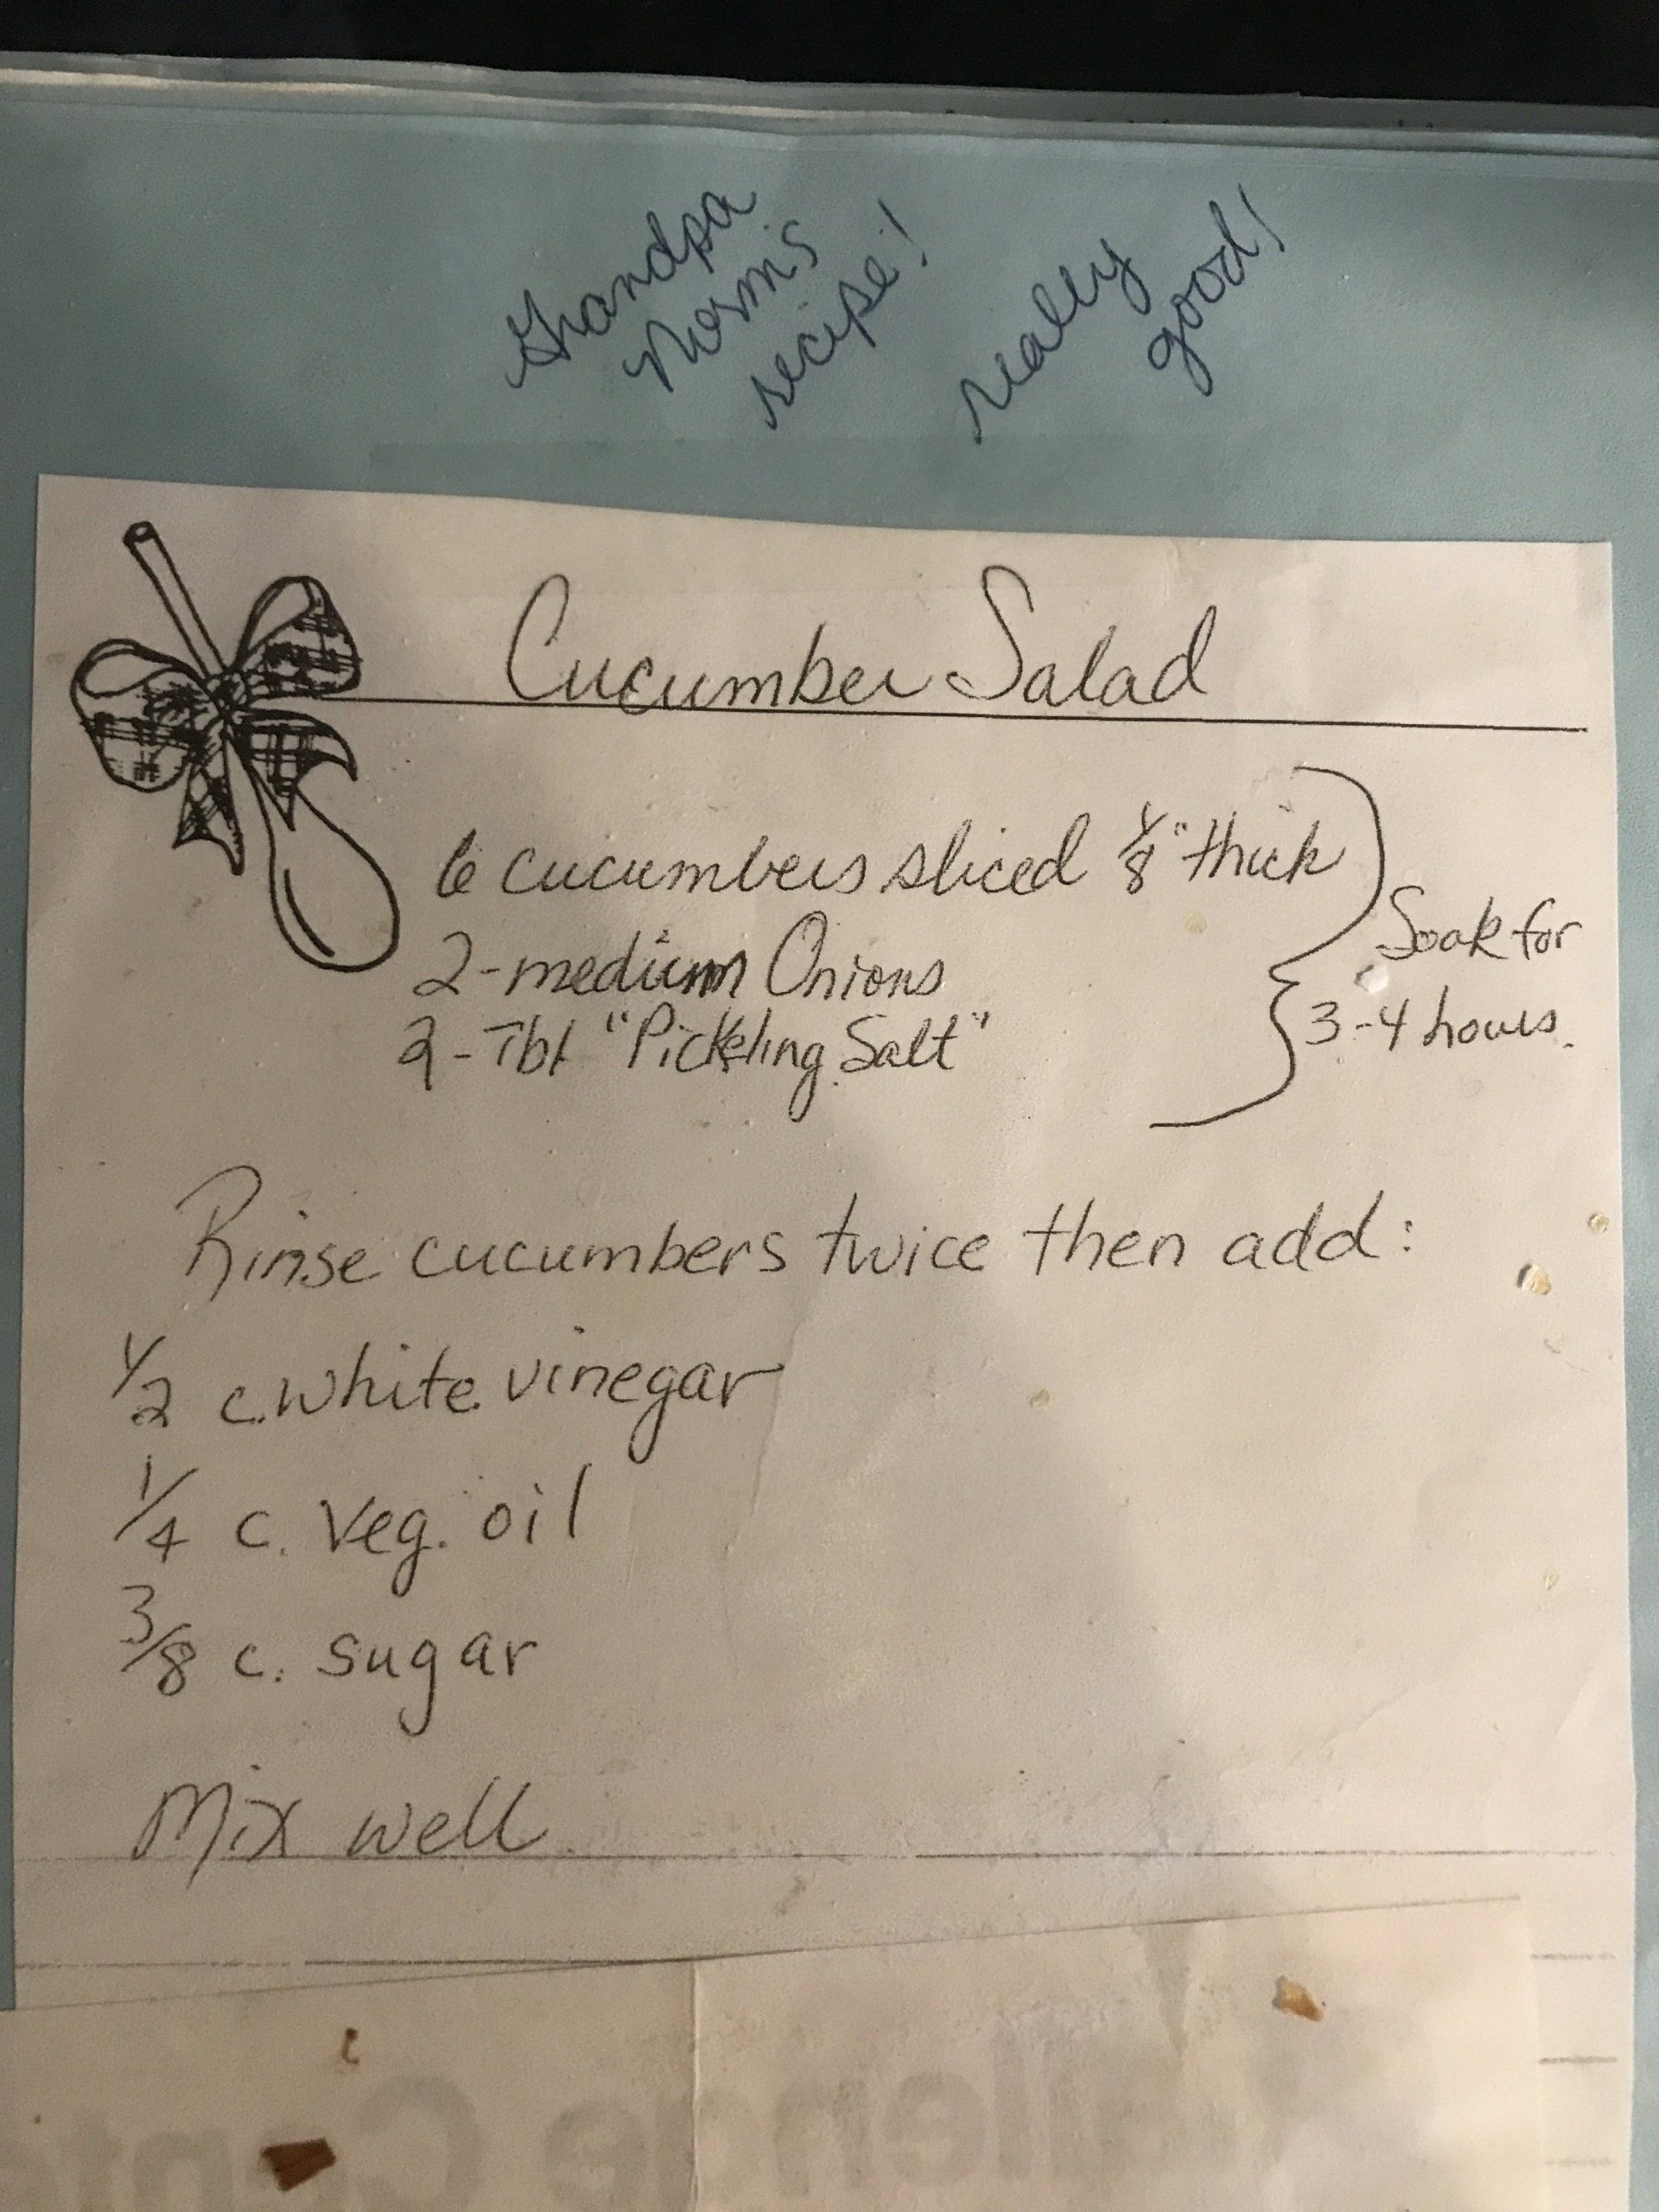 Grandpa
Norm's
recipe!
really
good!
Cucumber Salad
6 cucumbers sliced 1/8" thick
2-medium Onions
2-Tbl "Pickeling Salt"
Soak for
3-4 hours.
Rinse cucumbers twice then add:
1/2 c. white vinegar
1/4 c. Veg. oil
3/8 c. sugar
Mix well